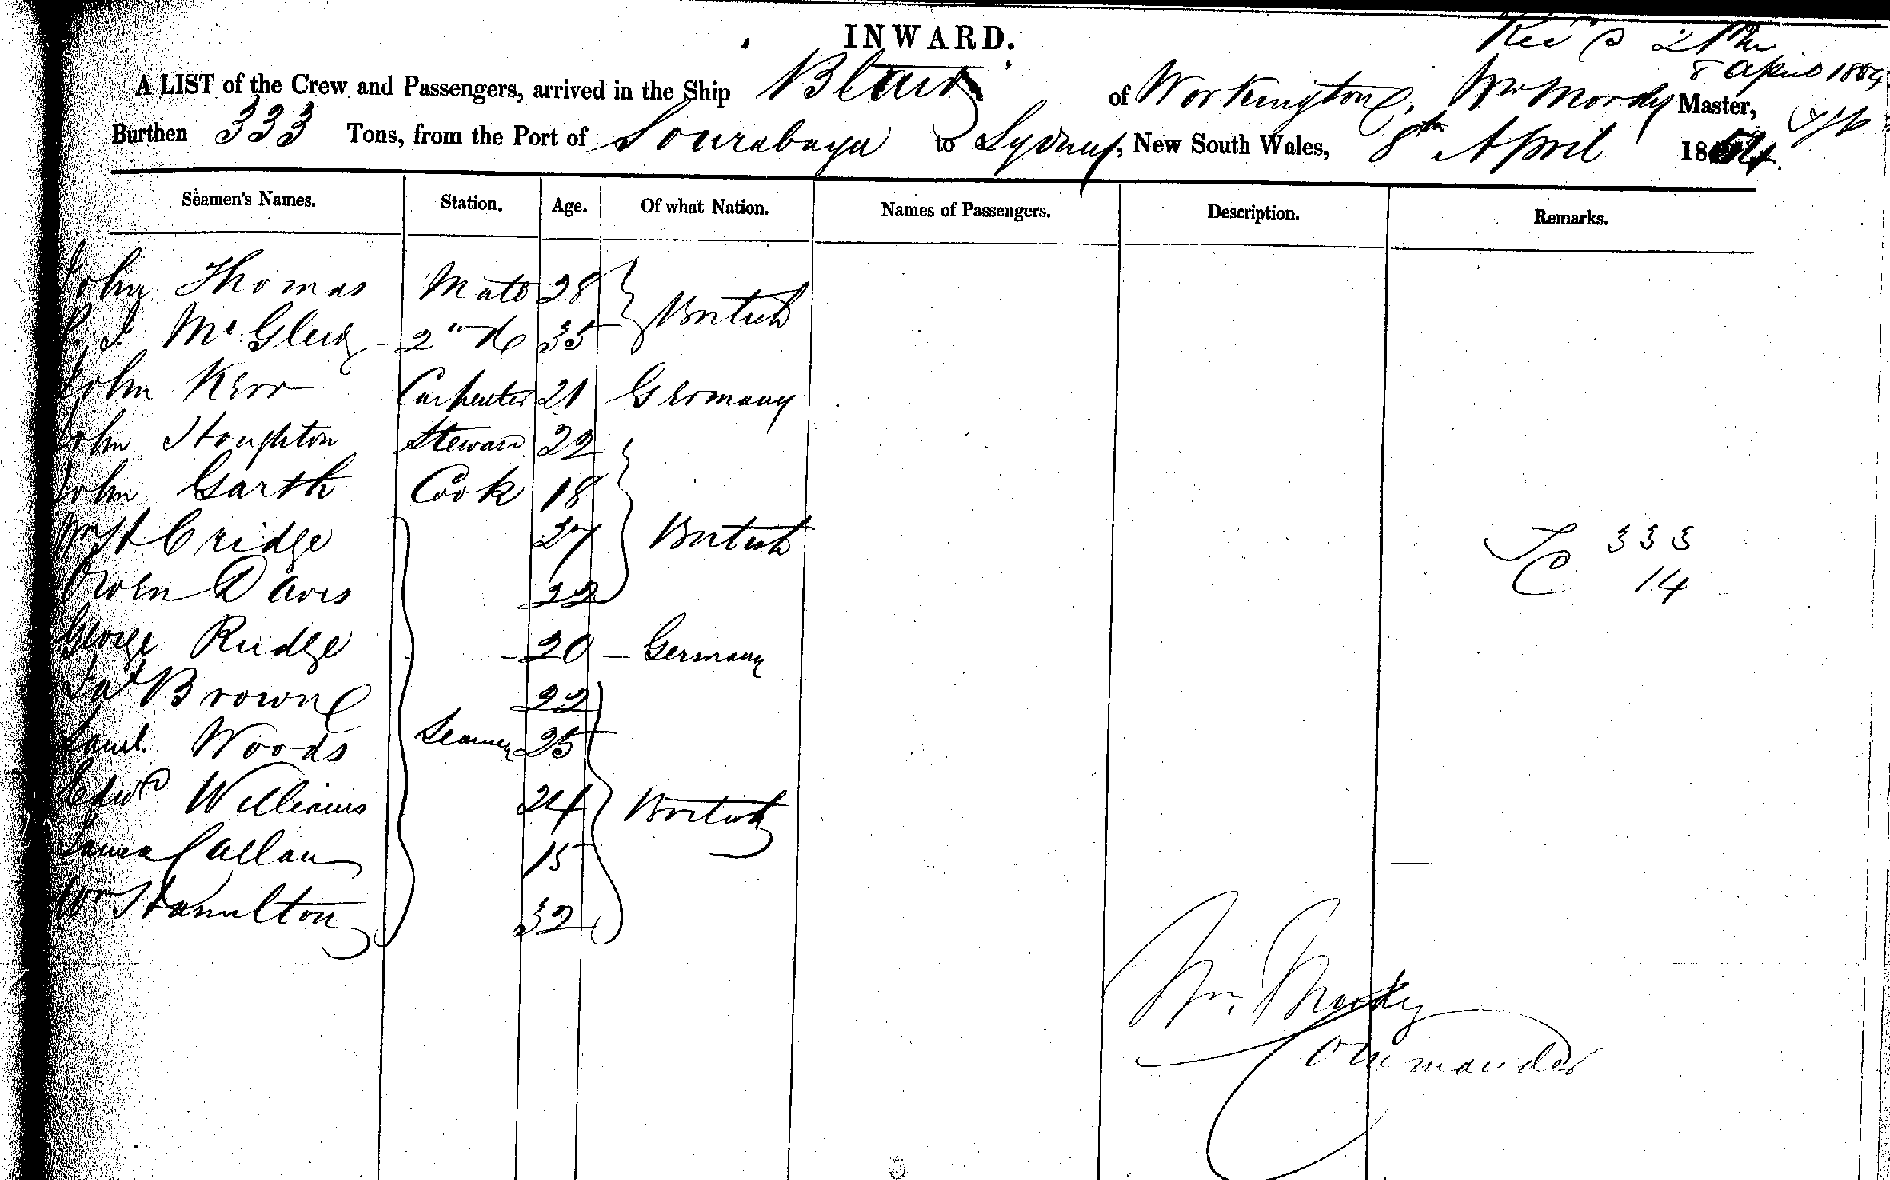 INWARD.
8 April 1854
A LIST of the Crew and Passengers, arrived in the Ship of Workington, Wm Moody Master,
Burthen 333 Tons, from the Port of Sourabaya to Sydney, New South Wales, 8th April 1854
Seamen's Names. Station. Age. Of what Nation. Names of Passengers. Description. Remarks.
John Thomas Mate 28 British
2nd Do 35
John Kerr Carpenter 21 Germany
John Houghton Steward 22
John Garth Cook 18
Wm H Cridge 27 British 333
Owen Davis 22 14
George Rudge 20 Germany
Brown 22
Saml. Woods Seamen 25
Edwd Williams 24 British
James Callan 15
Wm Hamilton 32
Wm. Moody
Commander